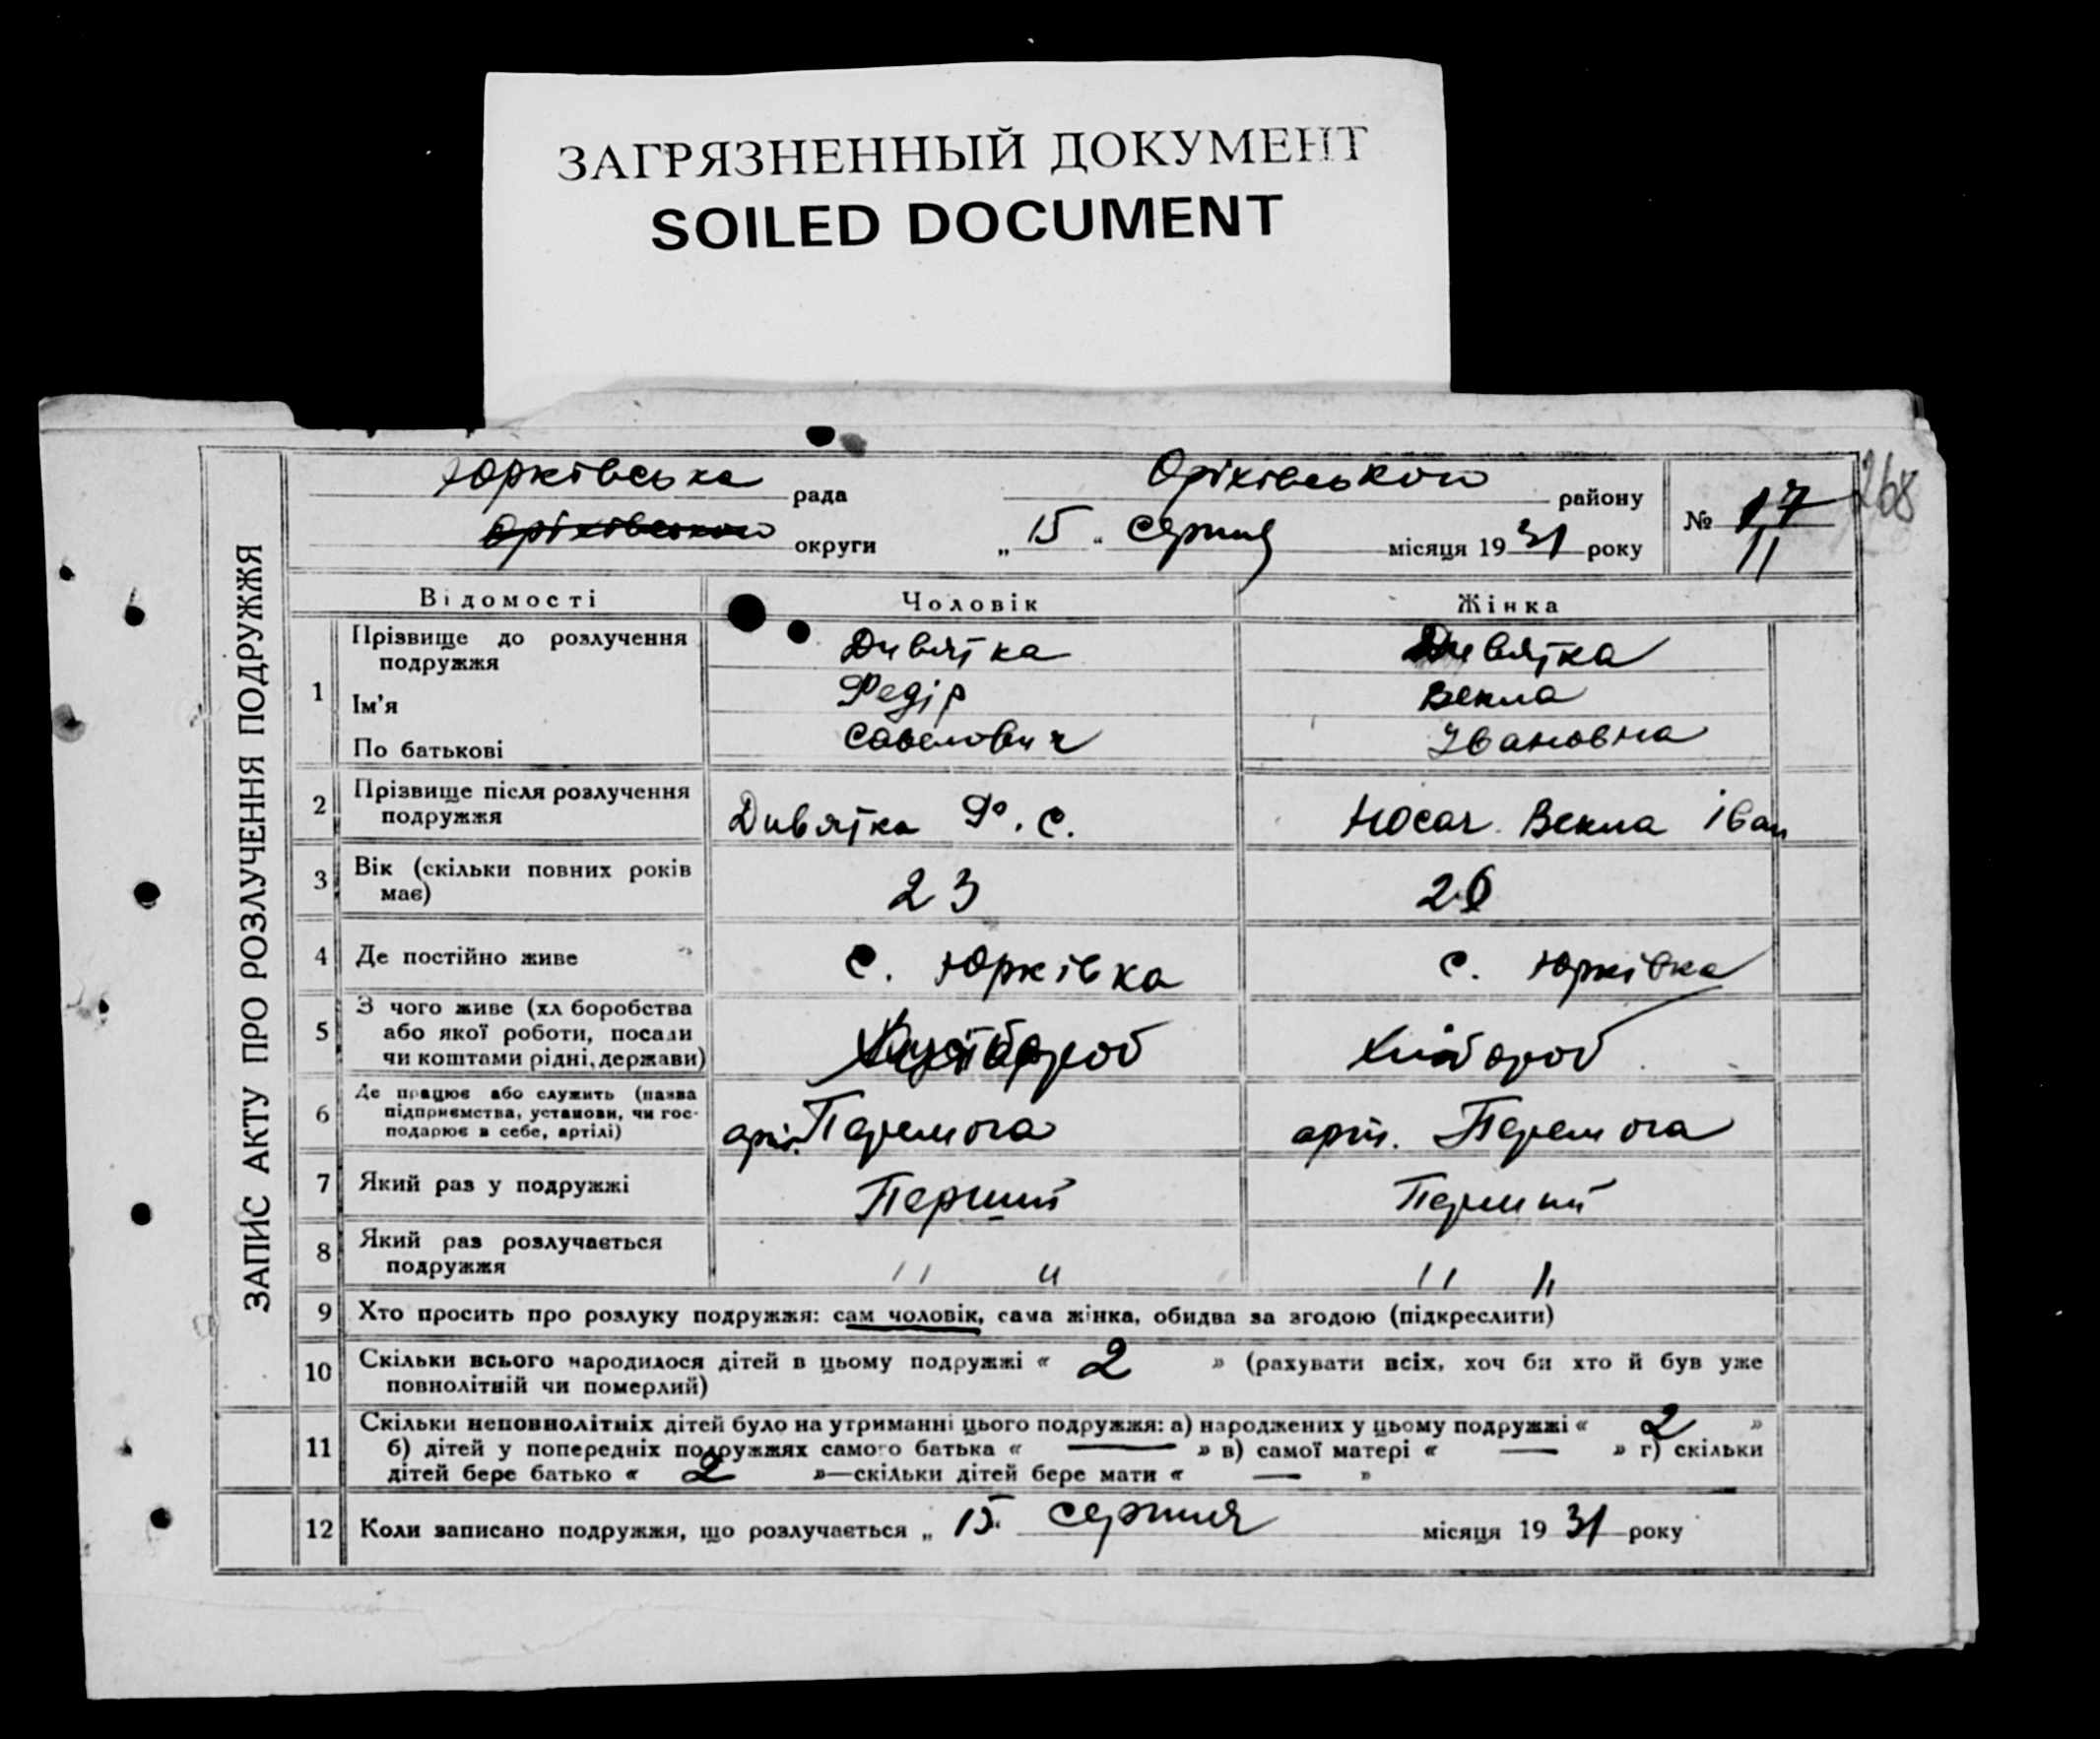 ЗАГРЯЗНЕННЫЙ ДОКУМЕНТ
SOILED DOCUMENT
268
ЗАПИС АКТУ ПРО РОЗЛУЧЕННЯ ПОДРУЖЖЯ
Юрківська рада Оріхівського району № 17
Оріхівського округи „ 15 " серпня місяця 1931 року 11
Відомості Чоловік Жінка
1 Прізвище до розлучення подружжя Дивятка Дивятка
Ім'я Федір Векла
По батькові Савелович Івановна
2 Прізвище після розлучення подружжя Дивятка Ф. С. Носач Векла Іван
3 Вік (скільки повних років має) 23 26
4 Де постійно живе с. Юрківка с. Юрківка
5 З чого живе (хл боробства або якої роботи, посади чи коштами рідні, держави) Хлібороб
6 Де працює або служить (назва підприємства, установи, чи господарює в себе, артілі) арт. Перемога арт. Перемога
7 Який раз у подружжі Перший Перший
8 Який раз розлучається подружжя " " " "
9 Хто просить про розлуку подружжя: сам чоловік, сама жінка, обидва за згодою (підкреслити)
10 Скільки всього народилося дітей в цьому подружжі « 2 » (рахувати всіх, хоч би хто й був уже
повнолітній чи померлий)
11 Скільки неповнолітніх дітей було на утриманні цього подружжя: а) народжених у цьому подружжі « 2 »
б) дітей у попередніх подружжях самого батька « — » в) самої матері « — » г) скільки
дітей бере батько « 2 »—скільки дітей бере мати « — »
12 Коли записано подружжя, що розлучається „ 15. серпня місяця 1931 року